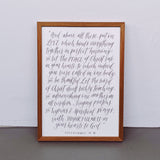 "And above all these put on
LOVE which binds everything
together in perfect harmony.
& let the PEACE of Christ rule
in your hearts to which indeed
you were called in one body.
& be thankful. Let the word
of Christ dwell richly teaching
& admonishing one another in
all wisdom, singing psalms
& hymns & spiritual songs
with THANKFULNESS in
your hearts to God"